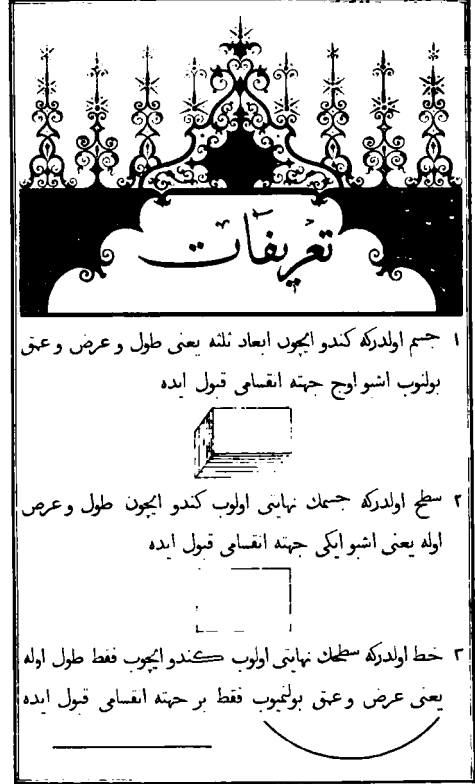 تعريفات
١ جسم اولدركه كندو ايچون ابعاد ثلثه يعنى طول و عرض و عمق
بولنوب اشبو اوج جهته انقسامى قبول ايده
٢ سطح اولدركه جسمك نهايتى اولوب كندو ايچون طول و عرض
اوله يعنى اشبو ايكى جهته انقسامى قبول ايده
٣ خط اولدركه سطحك نهايتى اولوب كندو ايچون فقط طول اوله
يعنى عرض و عمق بولنميوب فقط بر جهته انقسامى قبول ايده